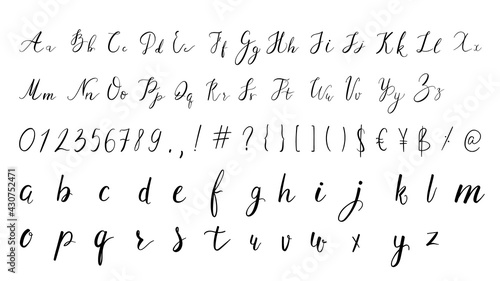 Aa Bb Cc Dd Ee Ff Gg Hh Ii Jj Kk Ll Xx
Mm Nn Oo Pp Qq Rr Ss Tt Uu Vv Yy Zz
0 1 2 3 5 6 7 8 9 . , ! # ? { } [ ] ( ) $ € ¥ ฿ % @
a b c d e f g h i j k l m
o p q r s t u v w x y z
Adobe Stock | #430752471